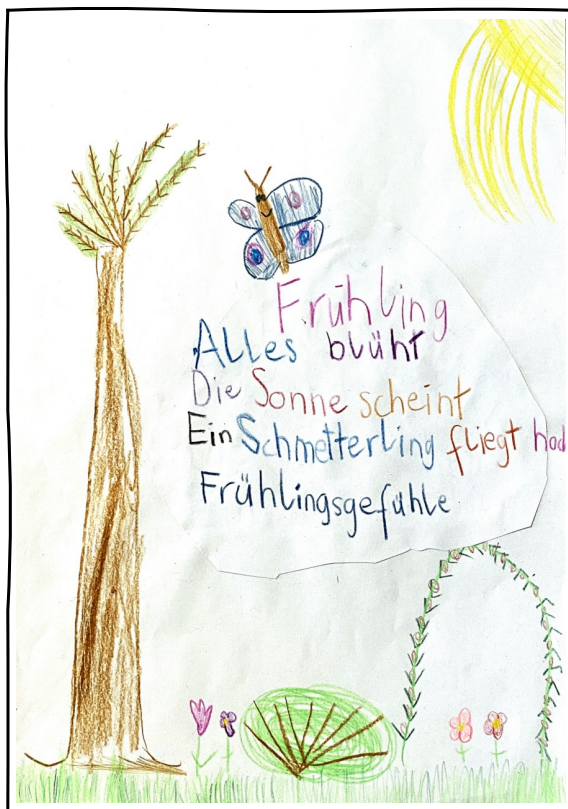 Frühling
Alles blüht
Die Sonne scheint
Ein Schmetterling fliegt
Frühlingsgefühle